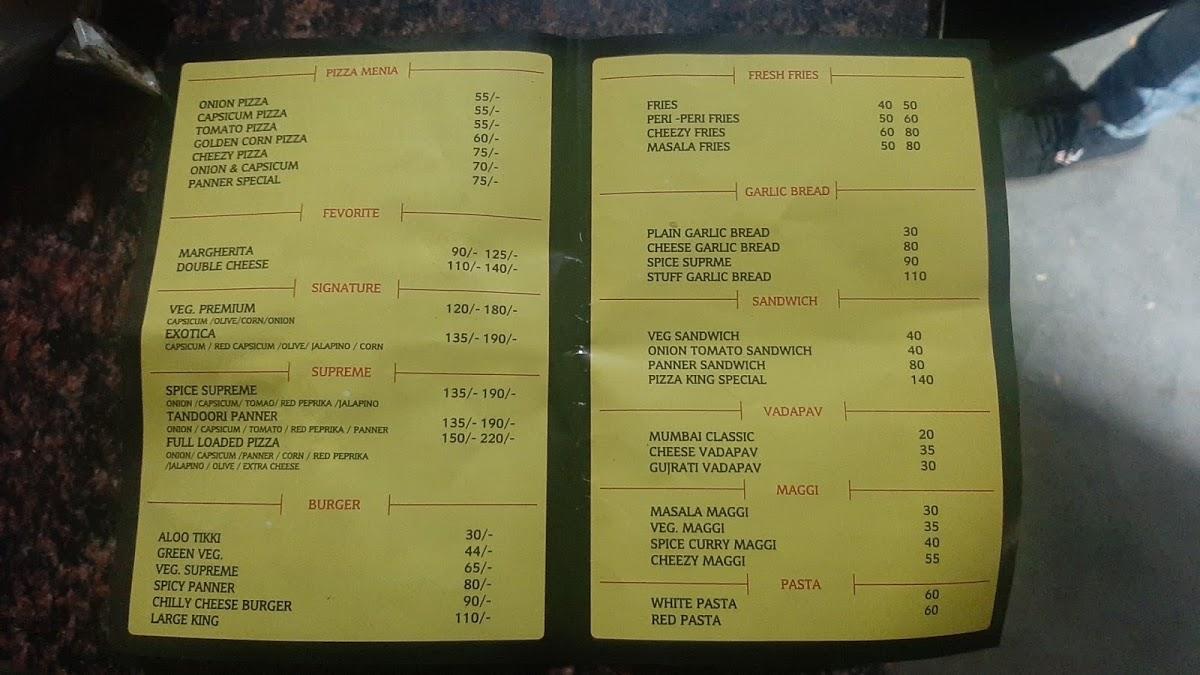 PIZZA MENIA
ONION PIZZA 55/-
CAPSICUM PIZZA 55/-
TOMATO PIZZA 55/-
GOLDEN CORN PIZZA 60/-
CHEEZY PIZZA 75/-
ONION & CAPSICUM 70/-
PANNER SPECIAL 75/-
FEVORITE
MARGHERITA 90/- 125/-
DOUBLE CHEESE 110/- 140/-
SIGNATURE
VEG. PREMIUM 120/- 180/-
CAPSICUM /OLIVE/CORN/ONION
EXOTICA 135/- 190/-
CAPSICUM / RED CAPSICUM /OLIVE/ JALAPINO / CORN
SUPREME
SPICE SUPREME 135/- 190/-
ONION /CAPSICUM/ TOMAO/ RED PEPRIKA /JALAPINO
TANDOORI PANNER 135/- 190/-
ONION / CAPSICUM / TOMATO / RED PEPRIKA / PANNER
FULL LOADED PIZZA 150/- 220/-
ONION/ CAPSICUM /PANNER / CORN / RED PEPRIKA
/JALAPINO / OLIVE / EXTRA CHEESE
BURGER
ALOO TIKKI 30/-
GREEN VEG. 44/-
VEG. SUPREME 65/-
SPICY PANNER 80/-
CHILLY CHEESE BURGER 90/-
LARGE KING 110/-
FRESH FRIES
FRIES 40 50
PERI -PERI FRIES 50 60
CHEEZY FRIES 60 80
MASALA FRIES 50 80
GARLIC BREAD
PLAIN GARLIC BREAD 30
CHEESE GARLIC BREAD 80
SPICE SUPRME 90
STUFF GARLIC BREAD 110
SANDWICH
VEG SANDWICH 40
ONION TOMATO SANDWICH 40
PANNER SANDWICH 80
PIZZA KING SPECIAL 140
VADAPAV
MUMBAI CLASSIC 20
CHEESE VADAPAV 35
GUJRATI VADAPAV 30
MAGGI
MASALA MAGGI 30
VEG. MAGGI 35
SPICE CURRY MAGGI 40
CHEEZY MAGGI 55
PASTA
WHITE PASTA 60
RED PASTA 60